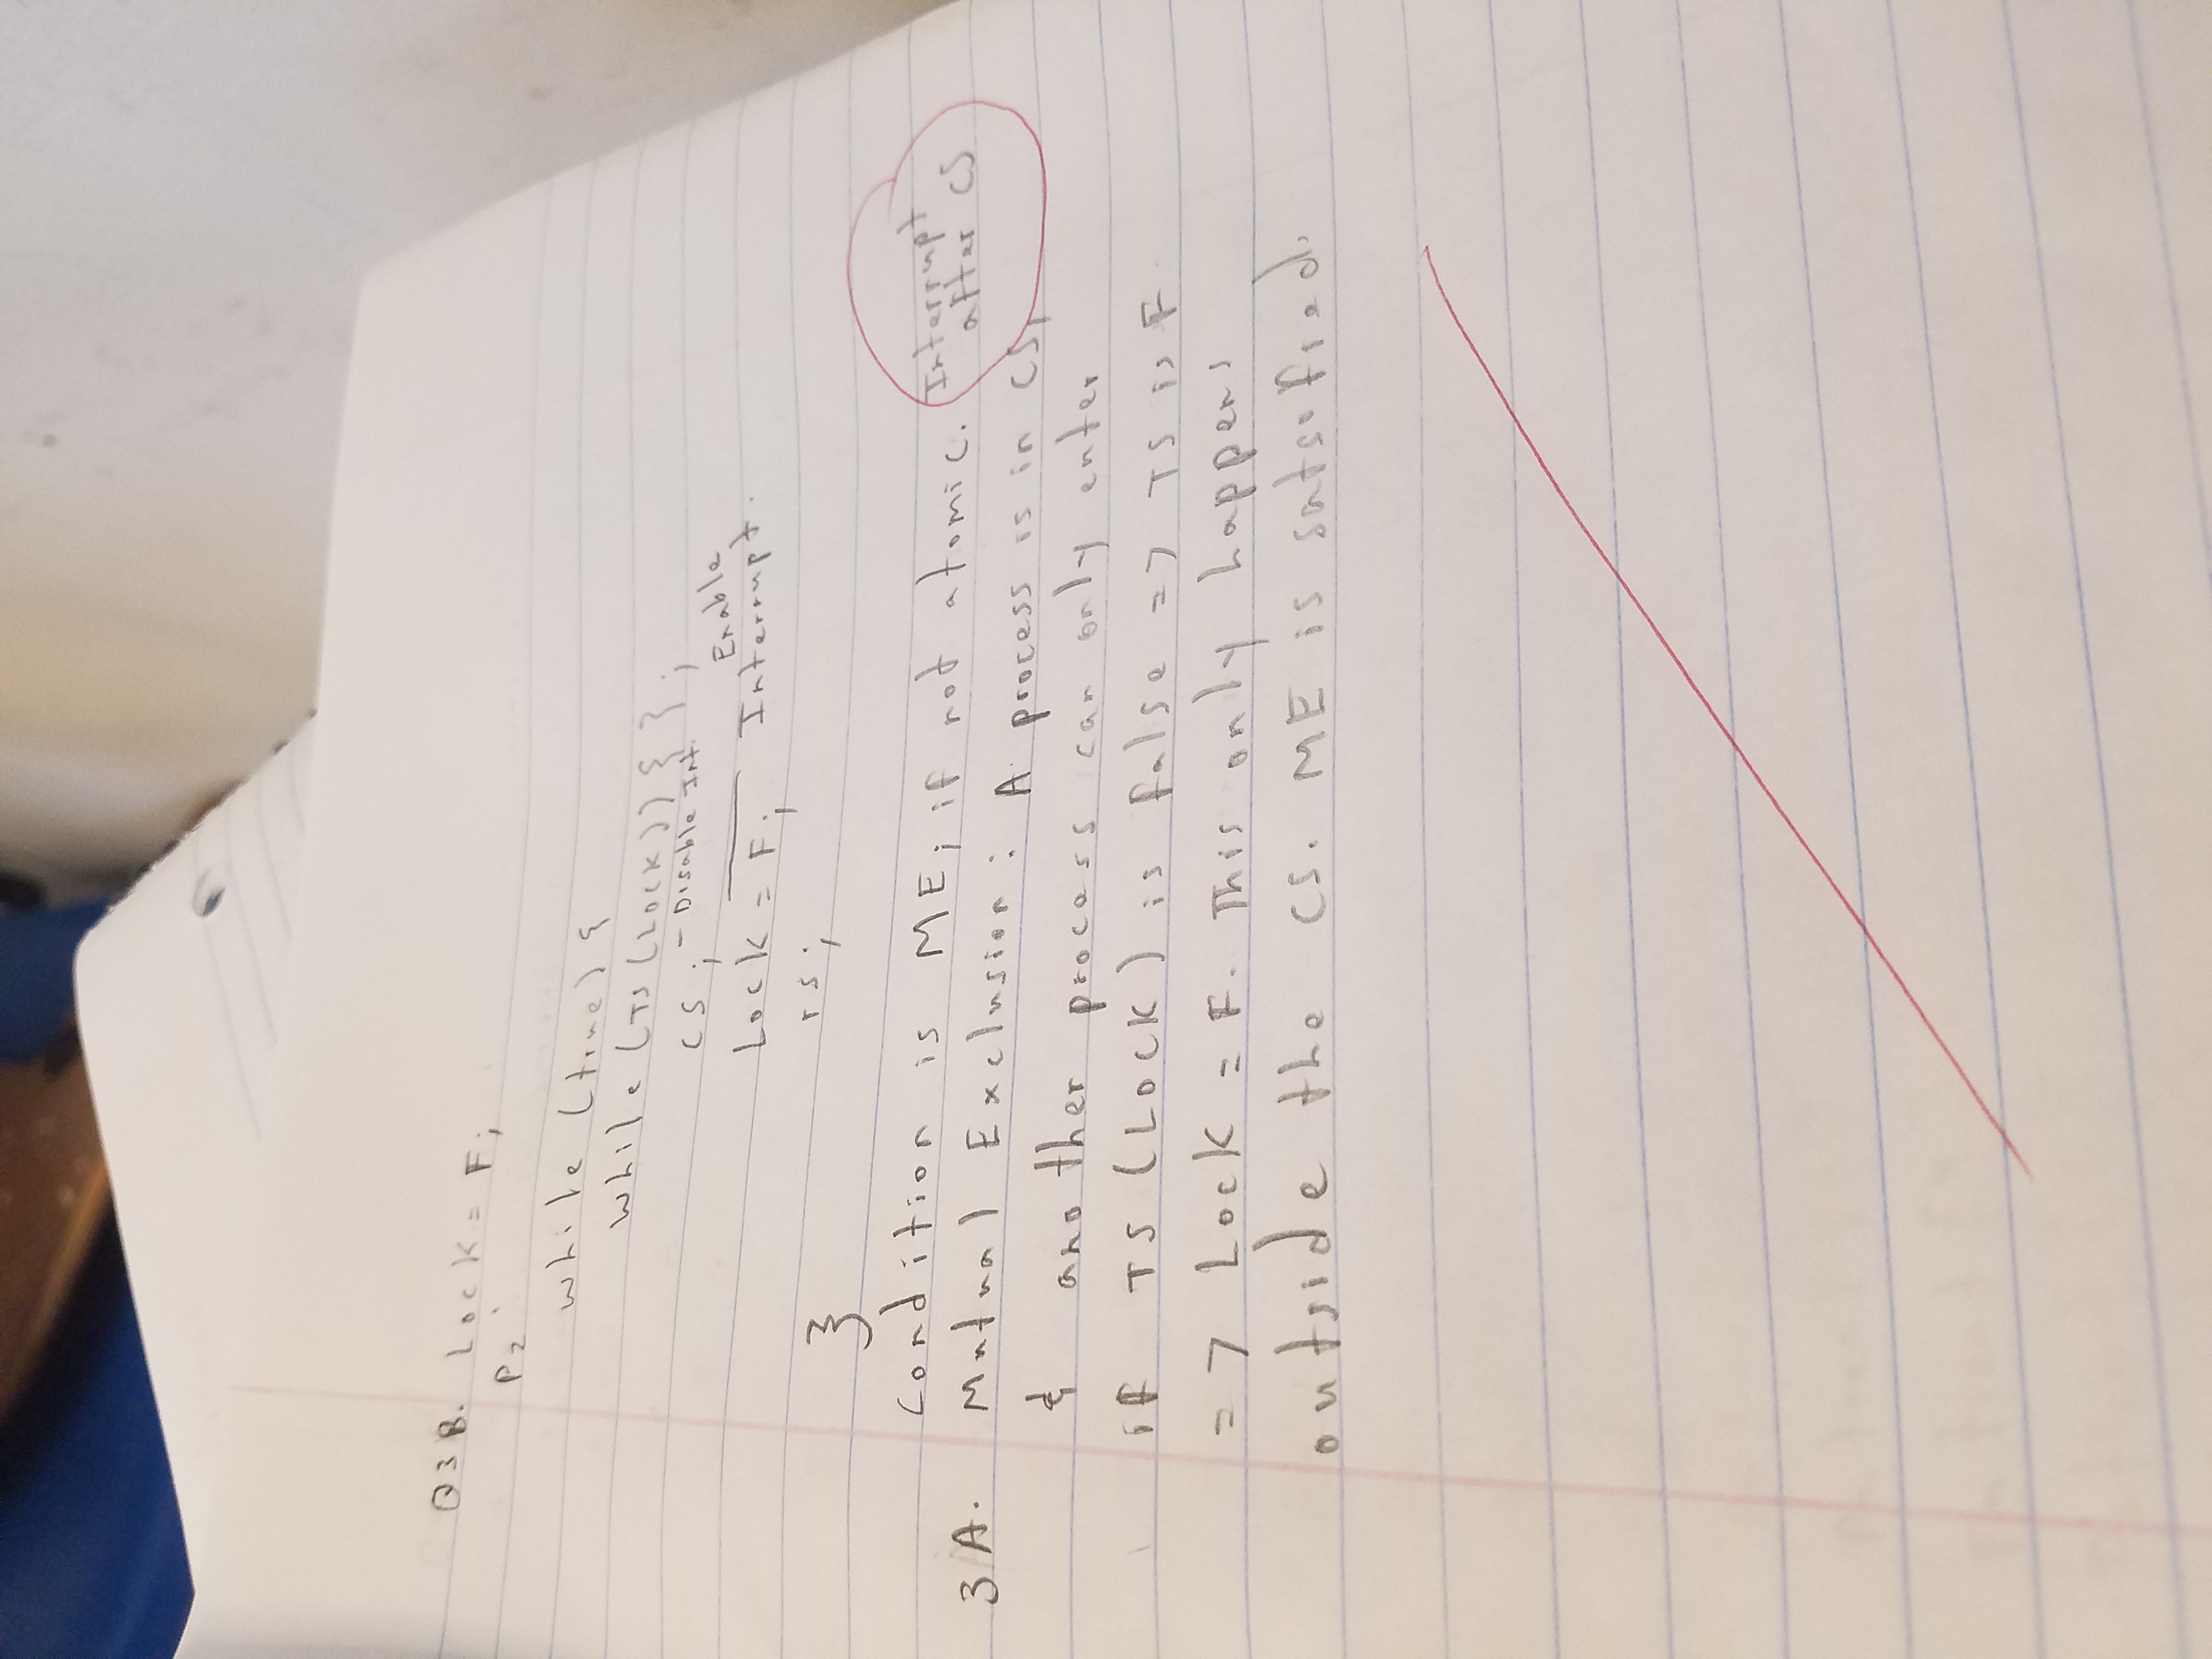 Q3B. Lock = F;
P2
while (true) {
while (TS (Lock)) { } ;
CS ; - Disable Int.
Enable
Lock = F; Interrupt.
rs ;
}
Condition is ME; if not atomic. Interrupt after CS
3 A. Mutual Exclusion : A process is in CS,
& another process can only enter
if TS (LOCK) is false => TS is F
=> Lock = F. This only happens
outside the CS. ME is satsified.